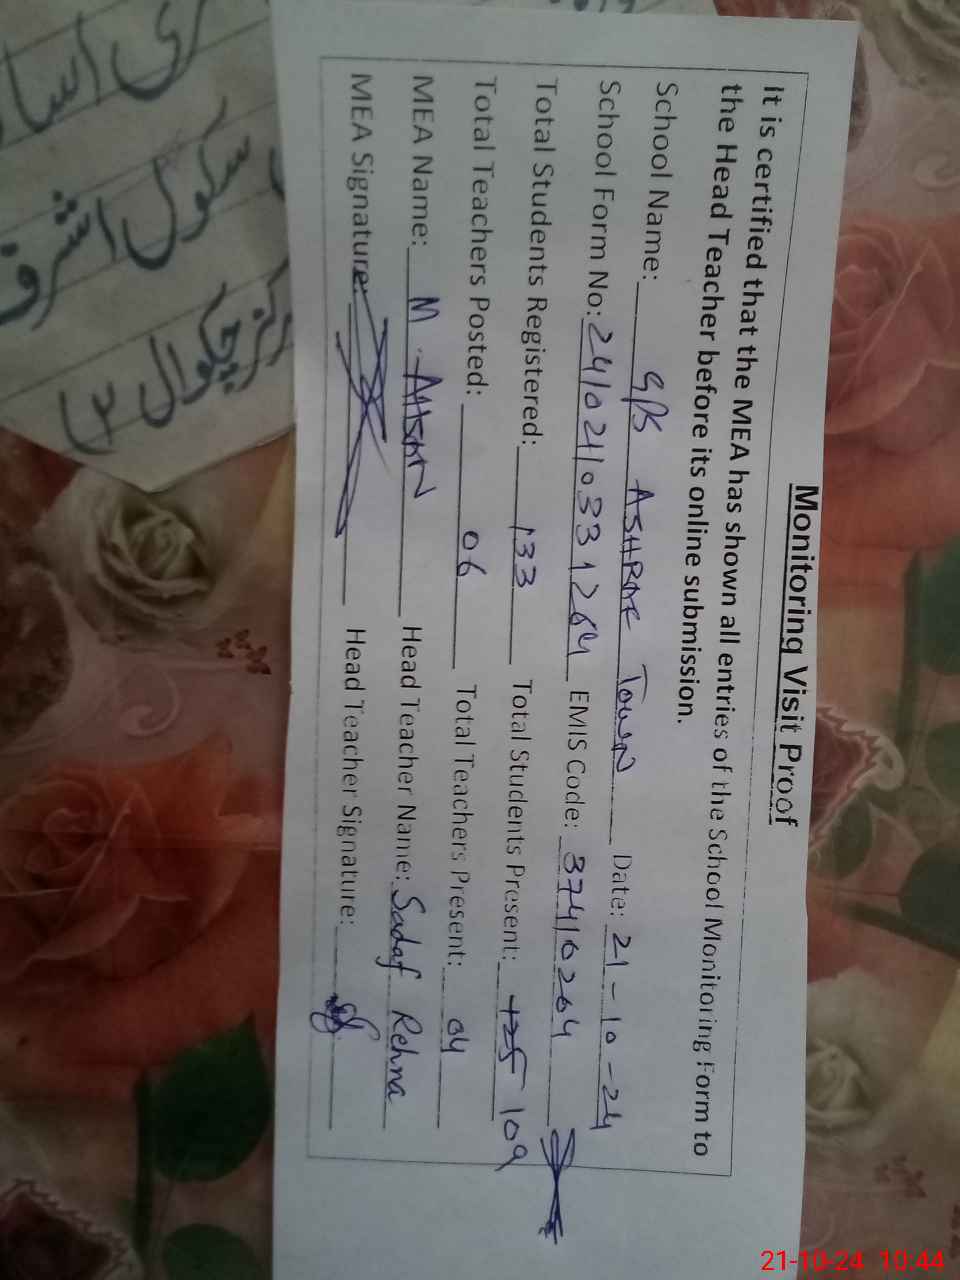 Monitoring Visit Proof
It is certified that the MEA has shown all entries of the School Monitoring Form to
the Head Teacher before its online submission.
School Name: G/PS ASHRAF TOWN Date: 21-10-24
School Form No: 2410241033 1264 EMIS Code: 37410264
Total Students Registered: 133 Total Students Present: 125 109
Total Teachers Posted: 06 Total Teachers Present: 04
MEA Name: M. AHSAN Head Teacher Name: Sadaf Rehna
MEA Signature: Head Teacher Signature:
سکول اشرف
مرکز چکوال ۳
21-10-24 10:44